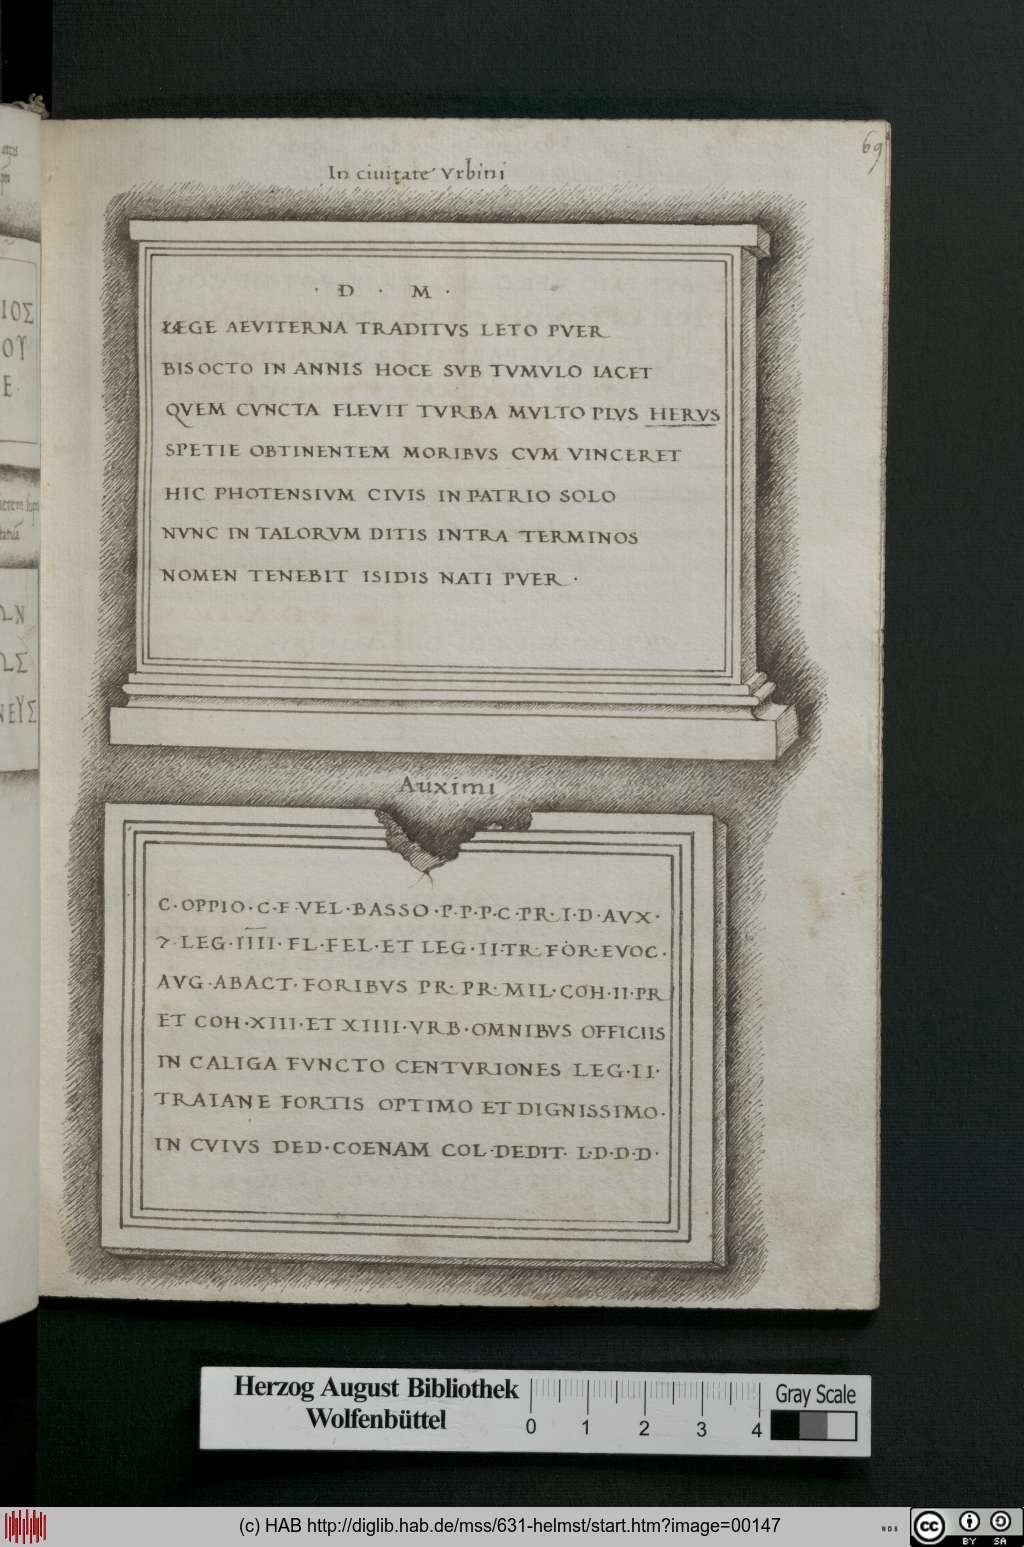 69
In ciuitate Vrbini
· D · M ·
LÆGE AEVITERNA TRADITVS LETO PVER
BIS OCTO IN ANNIS HOCE SVB TVMVLO IACET
QVEM CVNCTA FLEVIT TVRBA MVLTO PLVS HERVS
SPETIE OBTINENTEM MORIBVS CVM VINCERET
HIC PHOTENSIVM CIVIS IN PATRIO SOLO
NVNC IN TALORVM DITIS INTRA TERMINOS
NOMEN TENEBIT ISIDIS NATI PVER ·
Auximi
C·OPPIO·C·F·VEL·BASSO·P·P·P·C·PR·I·D·AVX·
7·LEG·IIII·FL·FEL·ET LEG·II·TR·FOR·EVOC·
AVG·ABACT·FORIBVS PR·PR·MIL·COH·II·PR
ET COH·XIII·ET XIIII·VRB·OMNIBVS OFFICIIS
IN CALIGA FVNCTO CENTVRIONES LEG·II·
TRAIANE FORTIS OPTIMO ET DIGNISSIMO·
IN CVIVS DED·COENAM COL·DEDIT·L·D·D·D·
ΙΟΣ
ΟΥ
Ε·
ΝΕΥΣ
Herzog August Bibliothek
Wolfenbüttel
0 1 2 3 4
Gray Scale
(c) HAB http://diglib.hab.de/mss/631-helmst/start.htm?image=00147
WDB
cc BY SA